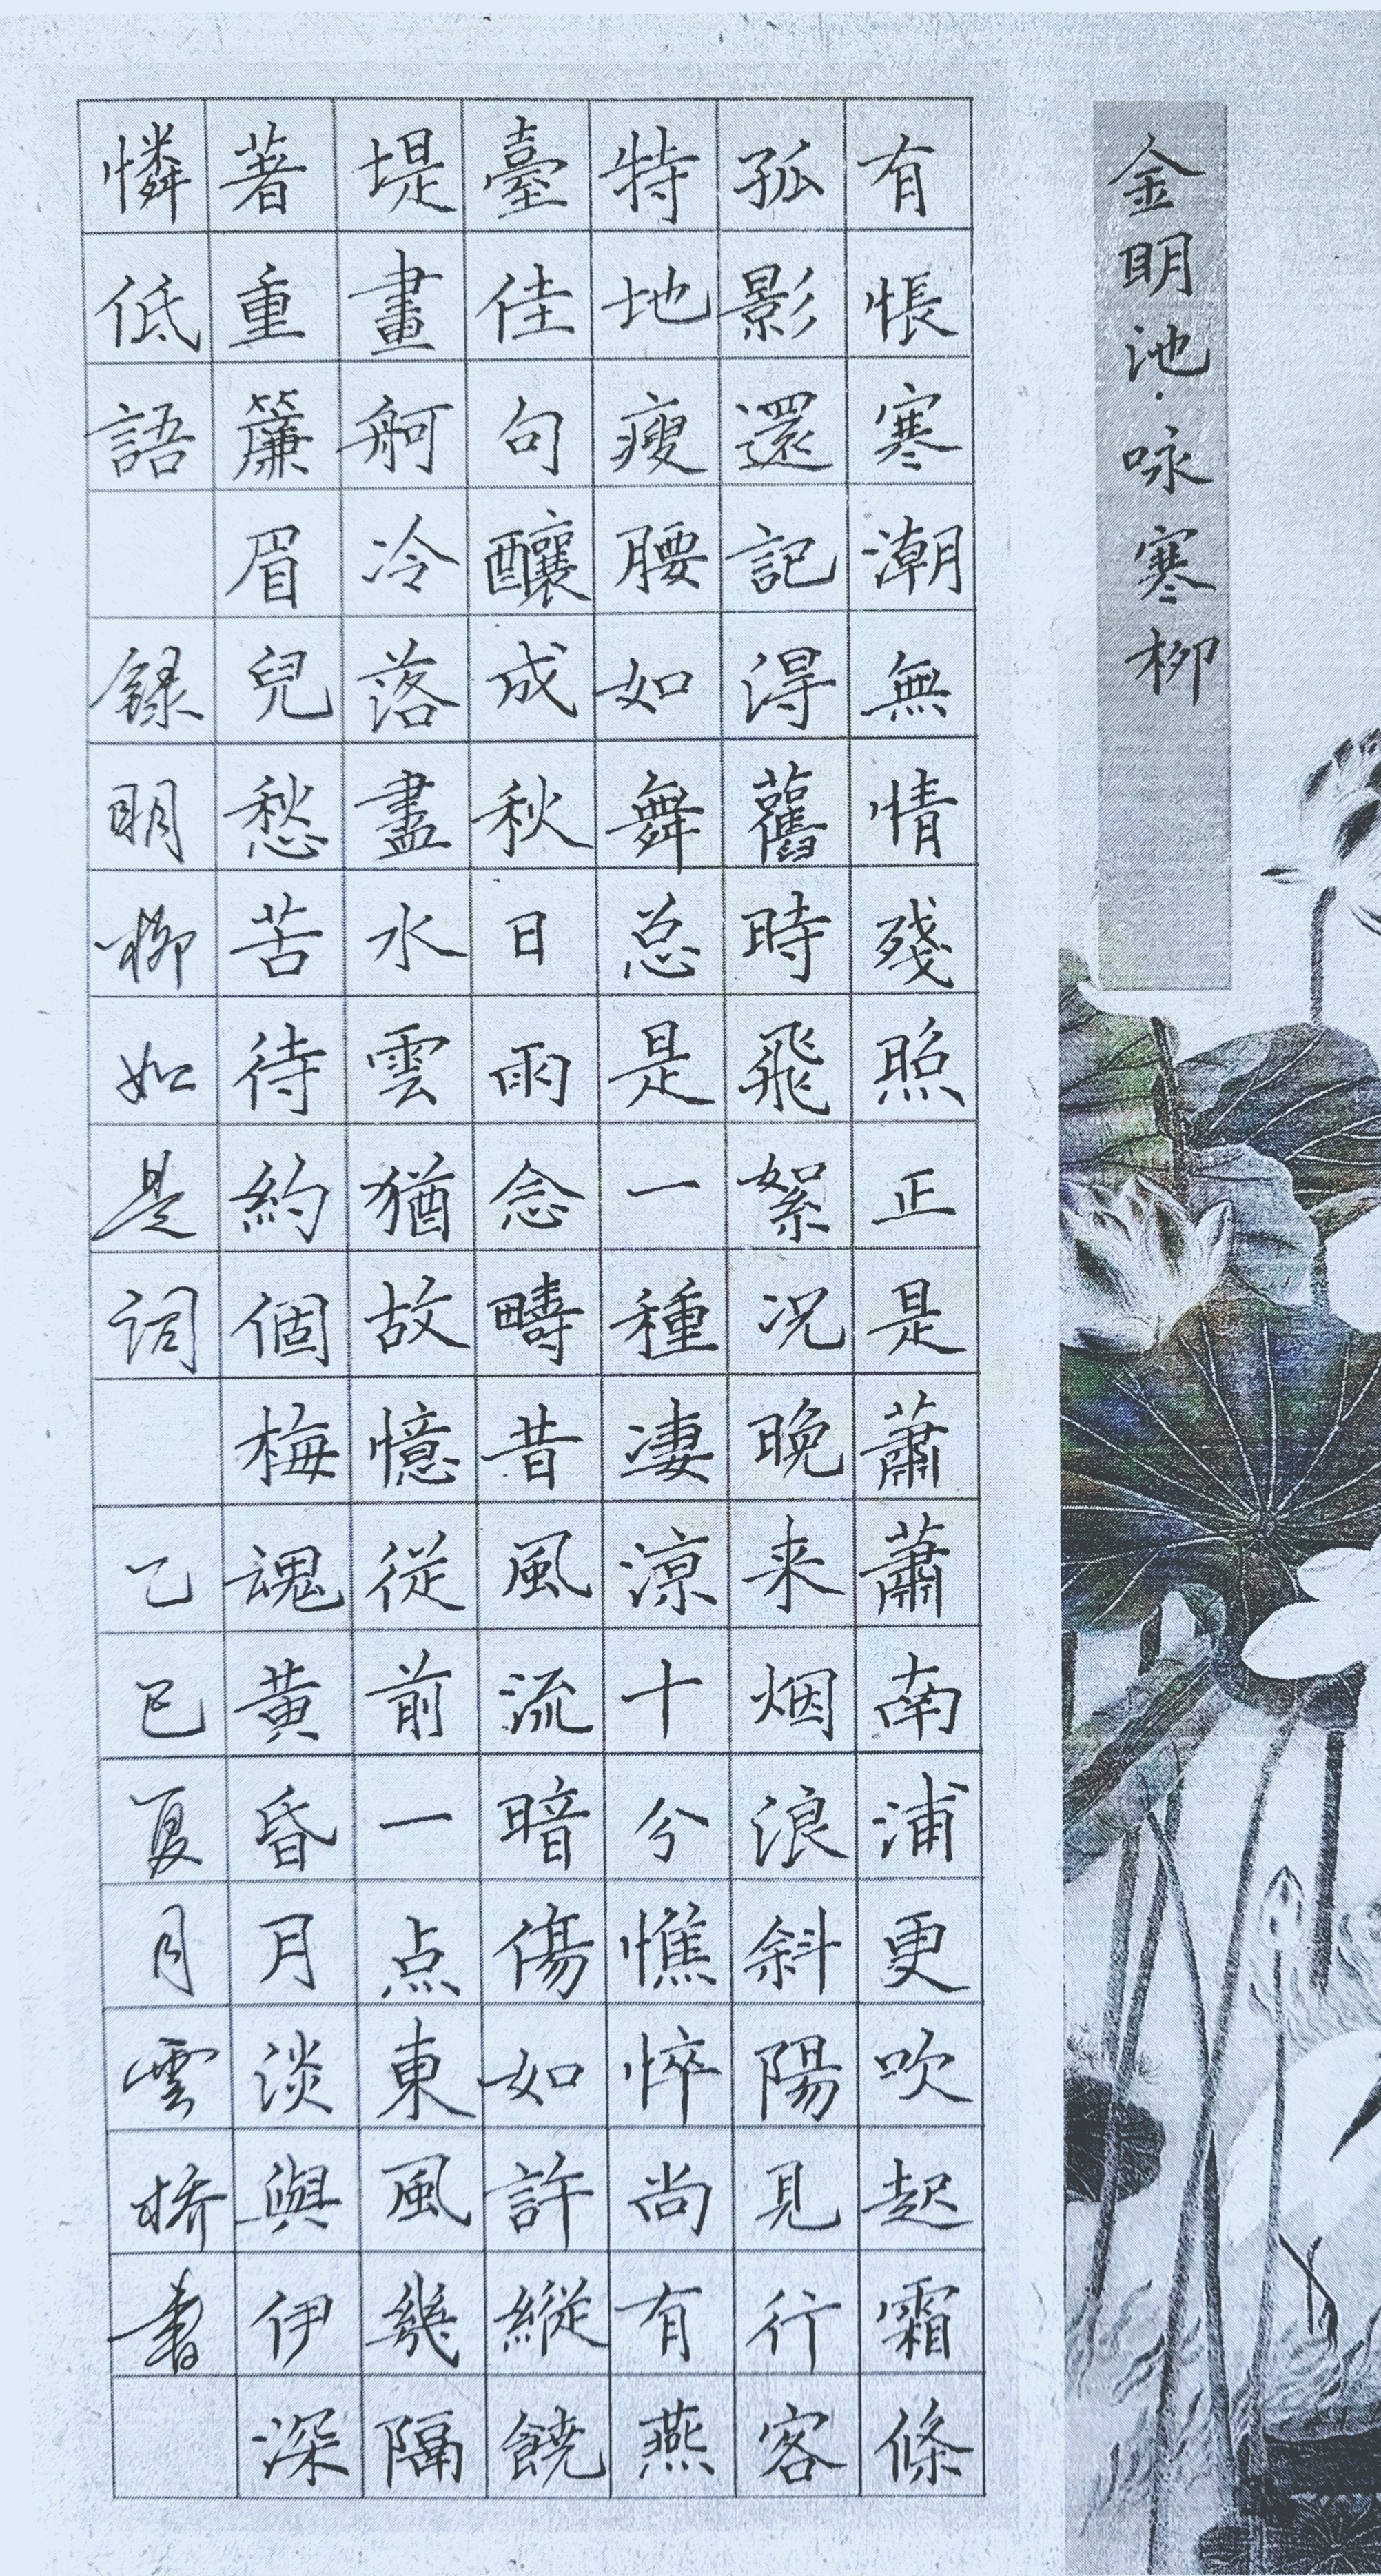 金明池·咏寒柳
有悵寒潮無情殘照正是蕭蕭南浦更吹起霜條
孤影還記得舊時飛絮况晚来烟浪斜陽見行客
特地瘦腰如舞总是一種凄涼十分憔悴尚有燕
臺佳句釀成秋日雨念疇昔風流暗傷如許縱饒
堤畫舸冷落盡水雲猶故憶從前一点東風幾隔
著重簾眉兒愁苦待約個梅魂黄昏月淡與伊深
憐低語 録明柳如是詞 乙巳夏月雲橋書